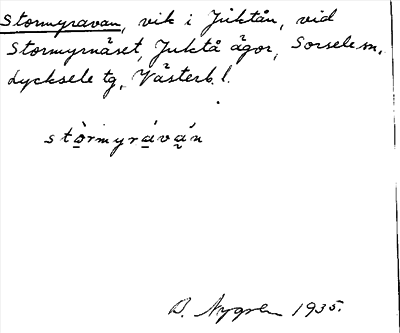 Stormyravan, vik i Juktån, vid
Stormyrnäset, Juktå ägor, Sorsele sn,
Lycksele tg, Västerb. l.
stòrmyrává̧n
B. Nygren 1935.